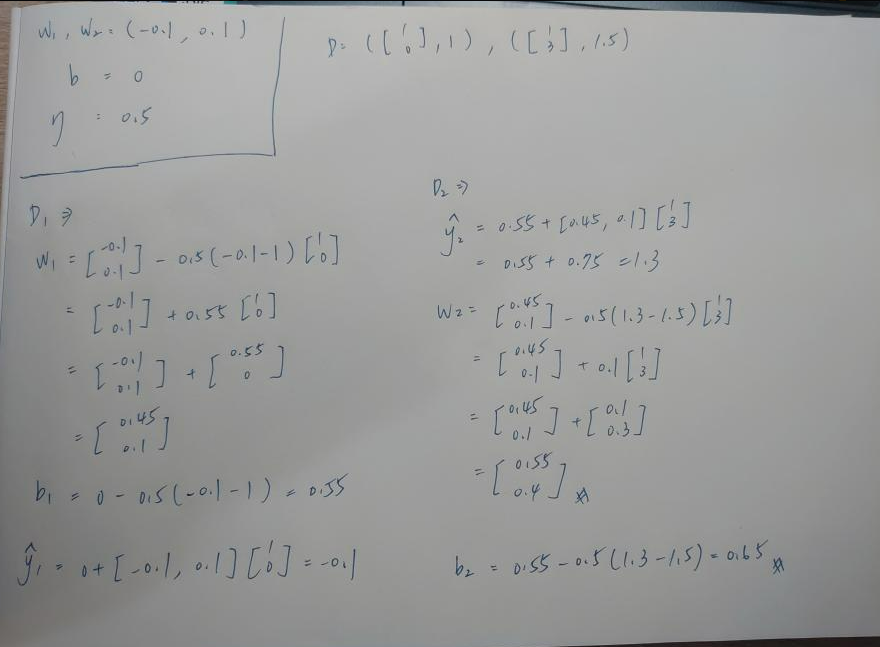 w₁, w₂ = (-0.1, 0.1)
b = 0
η = 0.5
D = ([1 0], 1), ([1 3], 1.5)
D₁ ⇒
w₁ = [-0.1 0.1] - 0.5(-0.1-1)[1 0]
= [-0.1 0.1] + 0.55 [1 0]
= [-0.1 0.1] + [0.55 0]
= [0.45 0.1]
b₁ = 0 - 0.5(-0.1-1) = 0.55
ŷ₁ = 0 + [-0.1, 0.1][1 0] = -0.1
D₂ ⇒
ŷ₂ = 0.55 + [0.45, 0.1][1 3]
= 0.55 + 0.75 = 1.3
W₂ = [0.45 0.1] - 0.5(1.3-1.5)[1 3]
= [0.45 0.1] + 0.1[1 3]
= [0.45 0.1] + [0.1 0.3]
= [0.55 0.4]
b₂ = 0.55 - 0.5(1.3-1.5) = 0.65